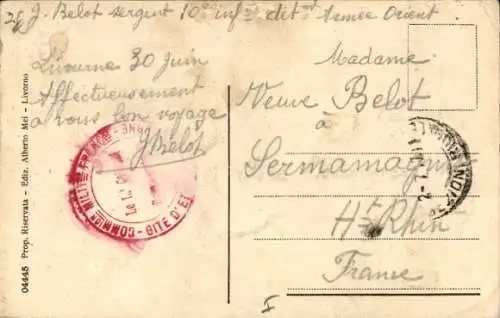 J. Belot sergent 10e infie détnt Armée Orient
Livourne 30 Juin
Affectueusement
à vous bon voyage
J Belot
Madame
Veuve Belot
à
Sermamagny
Ht Rhin
France
COMMISon MILITre FRANÇAISE
GITE D'ET
04445 Prop. Riservata - Ediz. Alberto Mei - Livorno
I